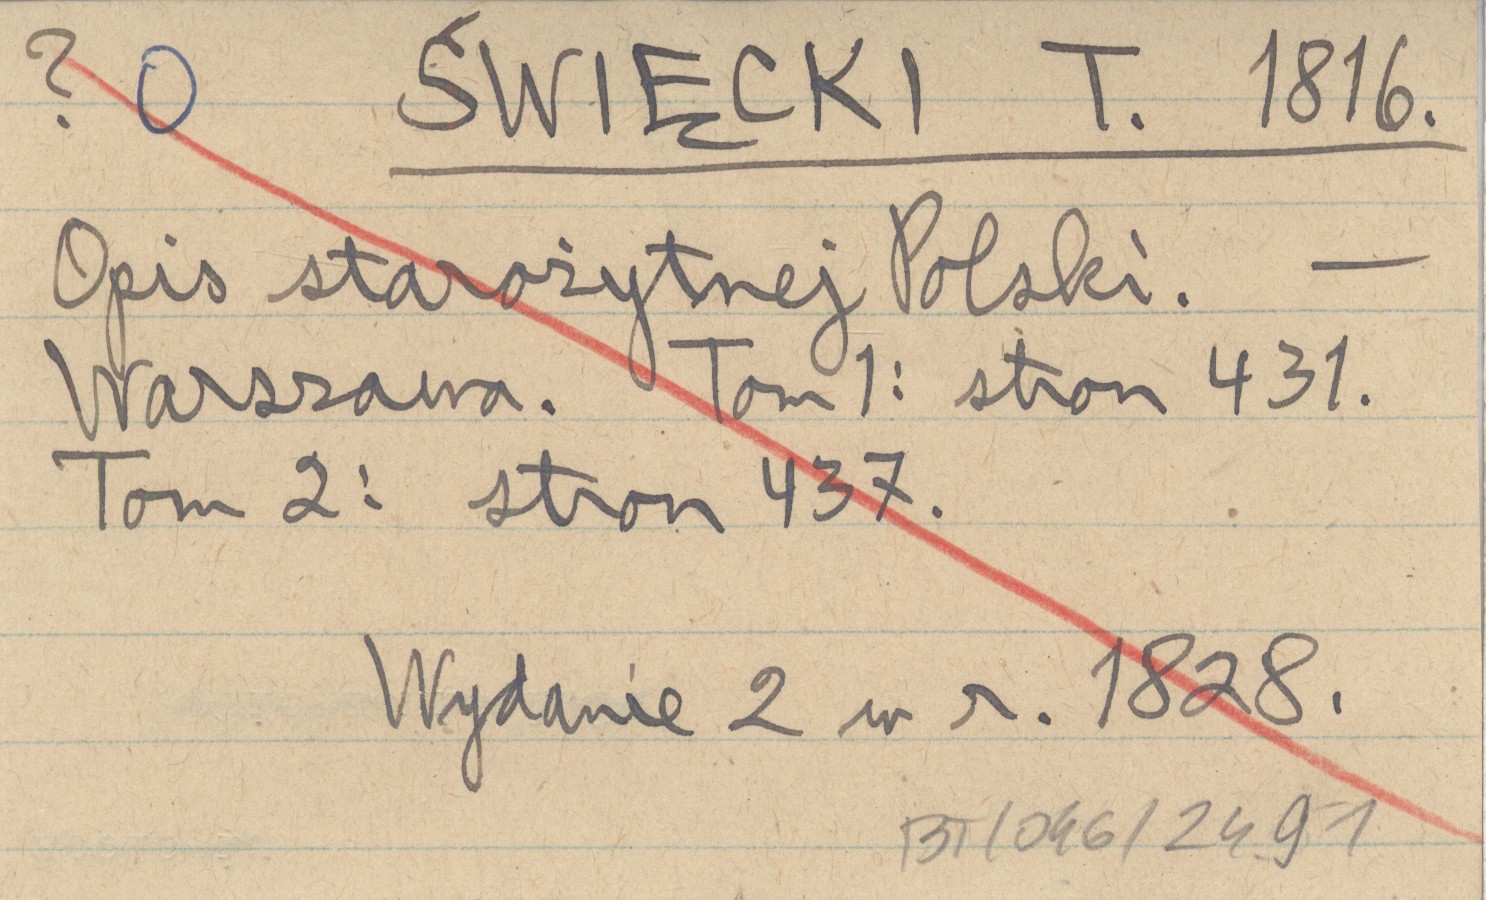 ? O ŚWIĘCKI T. 1816.
Opis starożytnej Polski. —
Warszawa. Tom 1: stron 431.
Tom 2: stron 437.
Wydanie 2 w r. 1828.